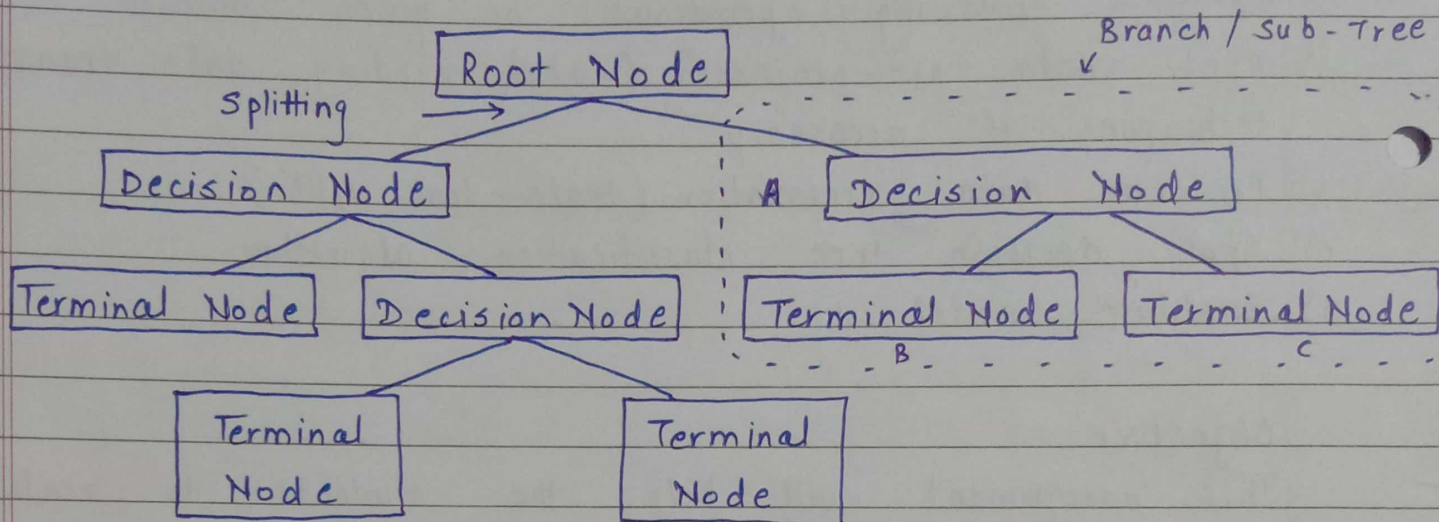 Branch / Sub-Tree
Root Node
Splitting
Decision Node
A
Decision Node
Terminal Node
Decision Node
Terminal Node
Terminal Node
B
C
Terminal
Node
Terminal
Node